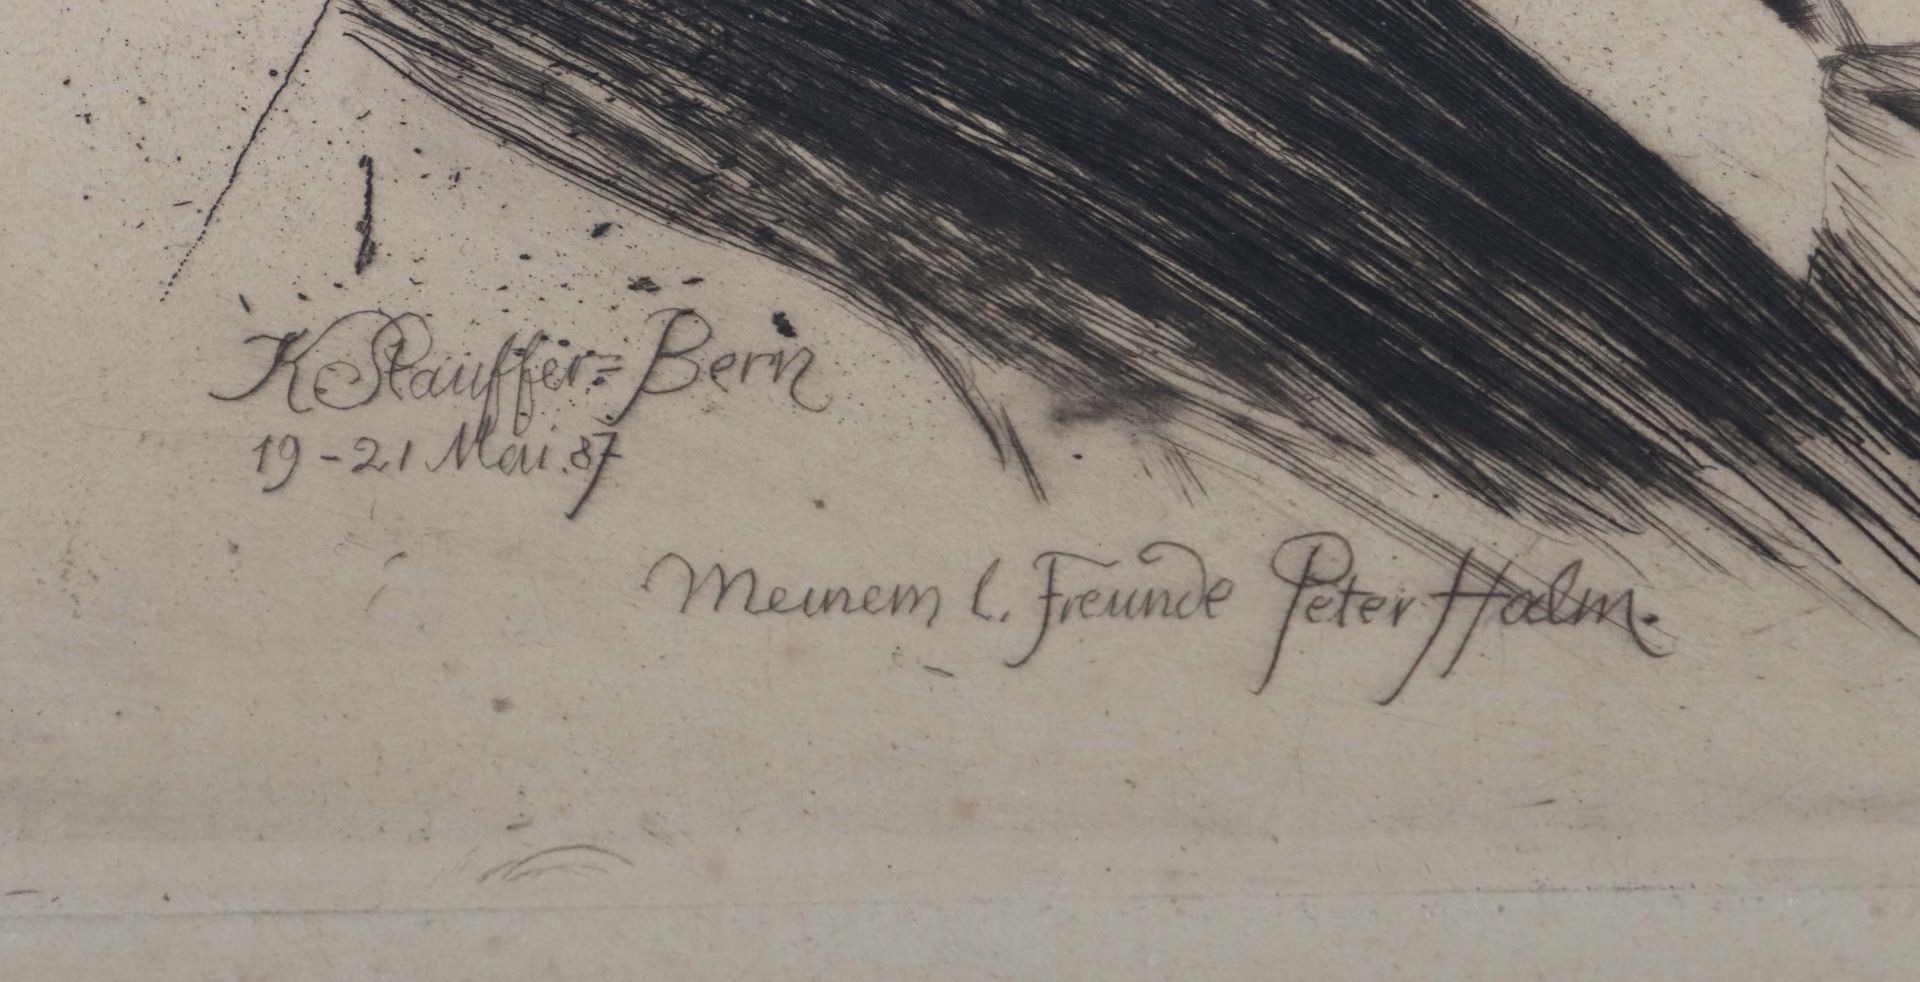 K Stauffer=Bern
19-21 Mai. 87
Meinem l. Freunde Peter Halm.